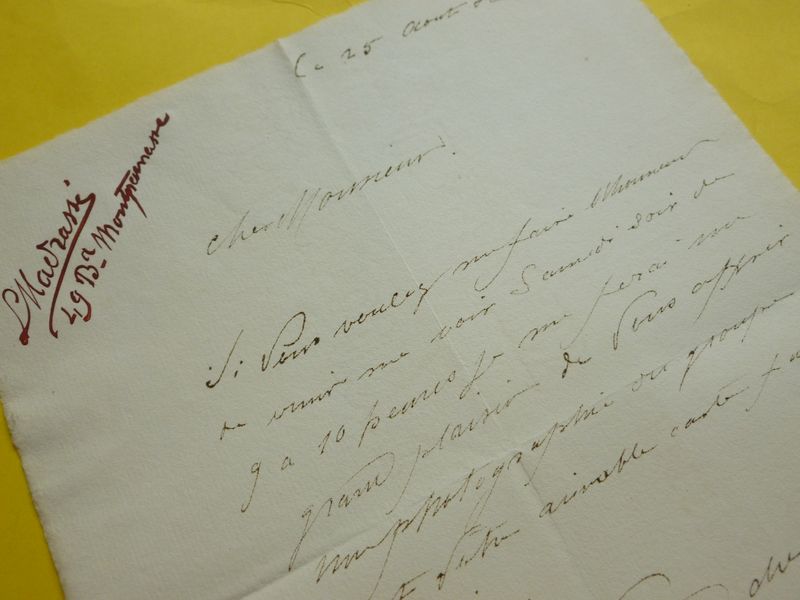 Le 25 Aout
LMadrassi
49 Bd Montparnasse
Cher Monsieur
Si Vous voulez me faire l'honneur
de venir me voir Samedi soir de
9 a 10 heures je me ferai un
grand plaisir de Vous offrir
une photographie du groupe
Votre aimable carte